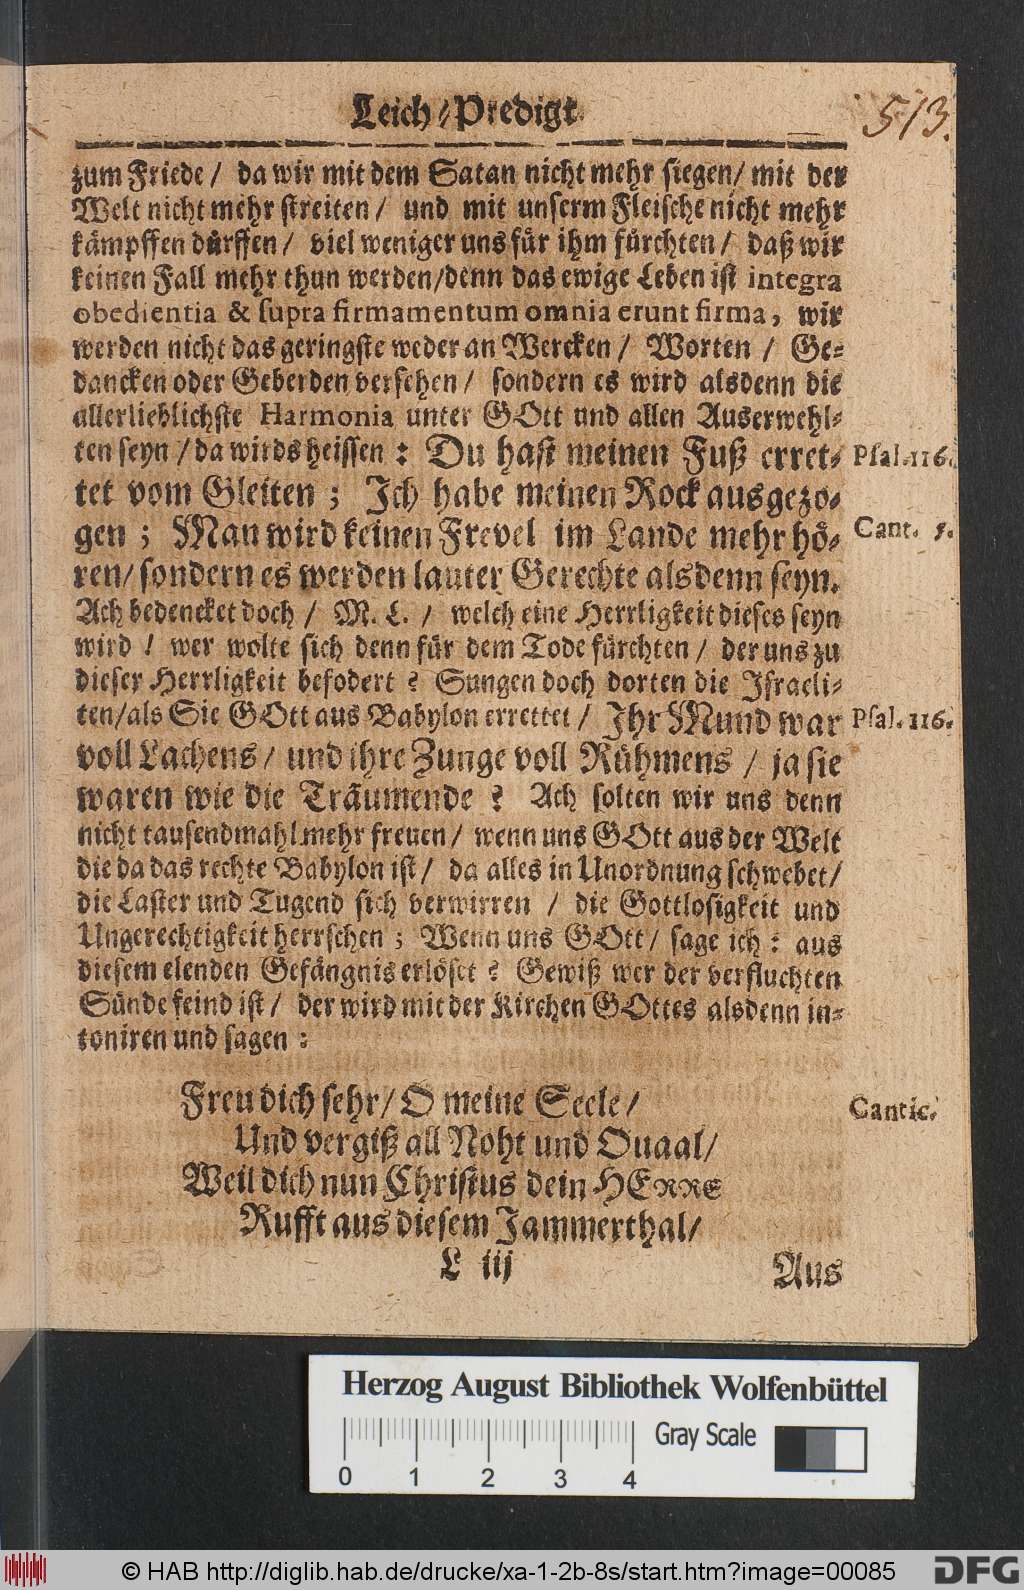 Leich-Predigt
513.
zum Friede / da wir mit dem Satan nicht mehr siegen / mit der
Welt nicht mehr streiten / und mit unserm Fleische nicht mehr
kämpffen dürffen / viel weniger uns für ihm fürchten / daß wir
keinen Fall mehr thun werden / denn das ewige Leben ist integra
obedientia & supra firmamentum omnia erunt firma, wir
werden nicht das geringste weder an Wercken / Worten / Ge-
dancken oder Geberden versehen / sondern es wird alsdenn die
allerlieblichste Harmonia unter GOtt und allen Auserwehl-
ten seyn / da wirds heissen : Du hast meinen Fuß erret- Psal. 116.
tet vom Gleiten ; Ich habe meinen Rock ausgezo-
gen ; Man wird keinen Frevel im Lande mehr hö- Cant. 5.
ren / sondern es werden lauter Gerechte alsdenn seyn.
Ach bedencket doch / M. L. / welch eine Herrligkeit dieses seyn
wird ! wer wolte sich denn für dem Tode fürchten / der uns zu
dieser Herrligkeit befodert ? Sungen doch dorten die Israeli-
ten / als Sie GOtt aus Babylon errettet / Ihr Mund war Psal. 116.
voll Lachens / und ihre Zunge voll Rühmens / ja sie
waren wie die Träumende ? Ach solten wir uns denn
nicht tausendmahl mehr freuen / wenn uns GOtt aus der Welt
die da das rechte Babylon ist / da alles in Unordnung schwebet /
die Laster und Tugend sich verwirren / die Gottlosigkeit und
Ungerechtigkeit herrschen ; Wenn uns GOtt / sage ich : aus
diesem elenden Gefängnis erlöset ? Gewiß wer der verfluchten
Sünde feind ist / der wird mit der Kirchen GOttes alsdenn in-
toniren und sagen :
Freu dich sehr / O meine Seele / Cantic.
Und vergiß all Noht und Quaal /
Weil dich nun Christus dein HERRE
Rufft aus diesem Jammerthal /
L iij Aus
Herzog August Bibliothek Wolfenbüttel
0 1 2 3 4 Gray Scale
© HAB http://diglib.hab.de/drucke/xa-1-2b-8s/start.htm?image=00085 DFG